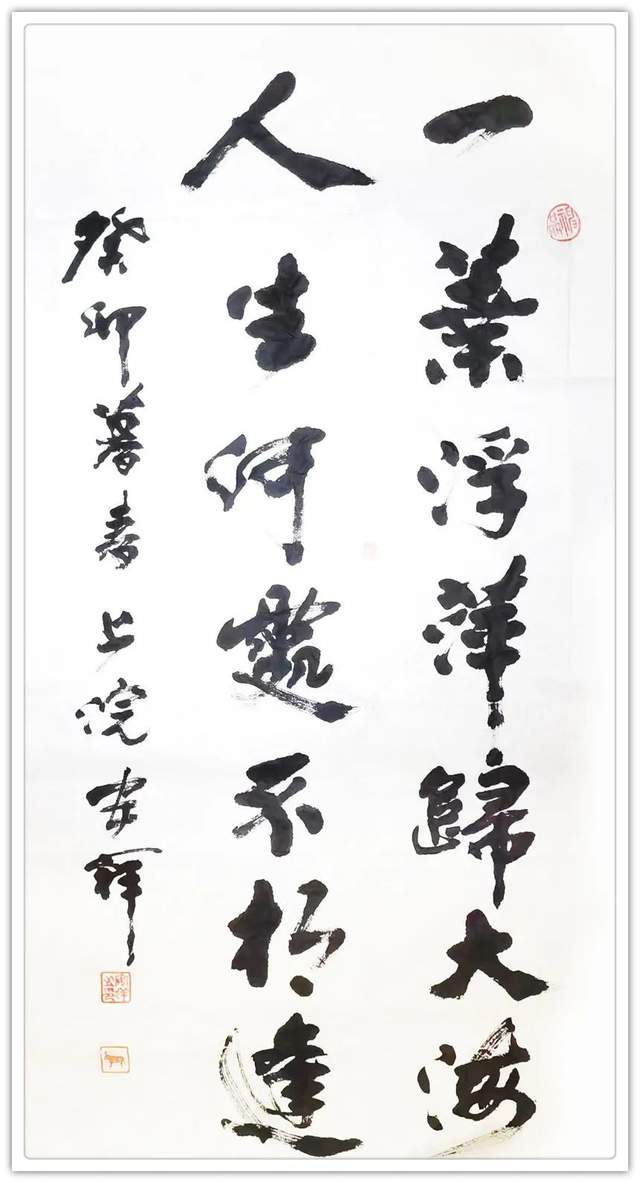 一葉浮萍歸大海
人生何處不相逢
癸卯暮春上浣 祥